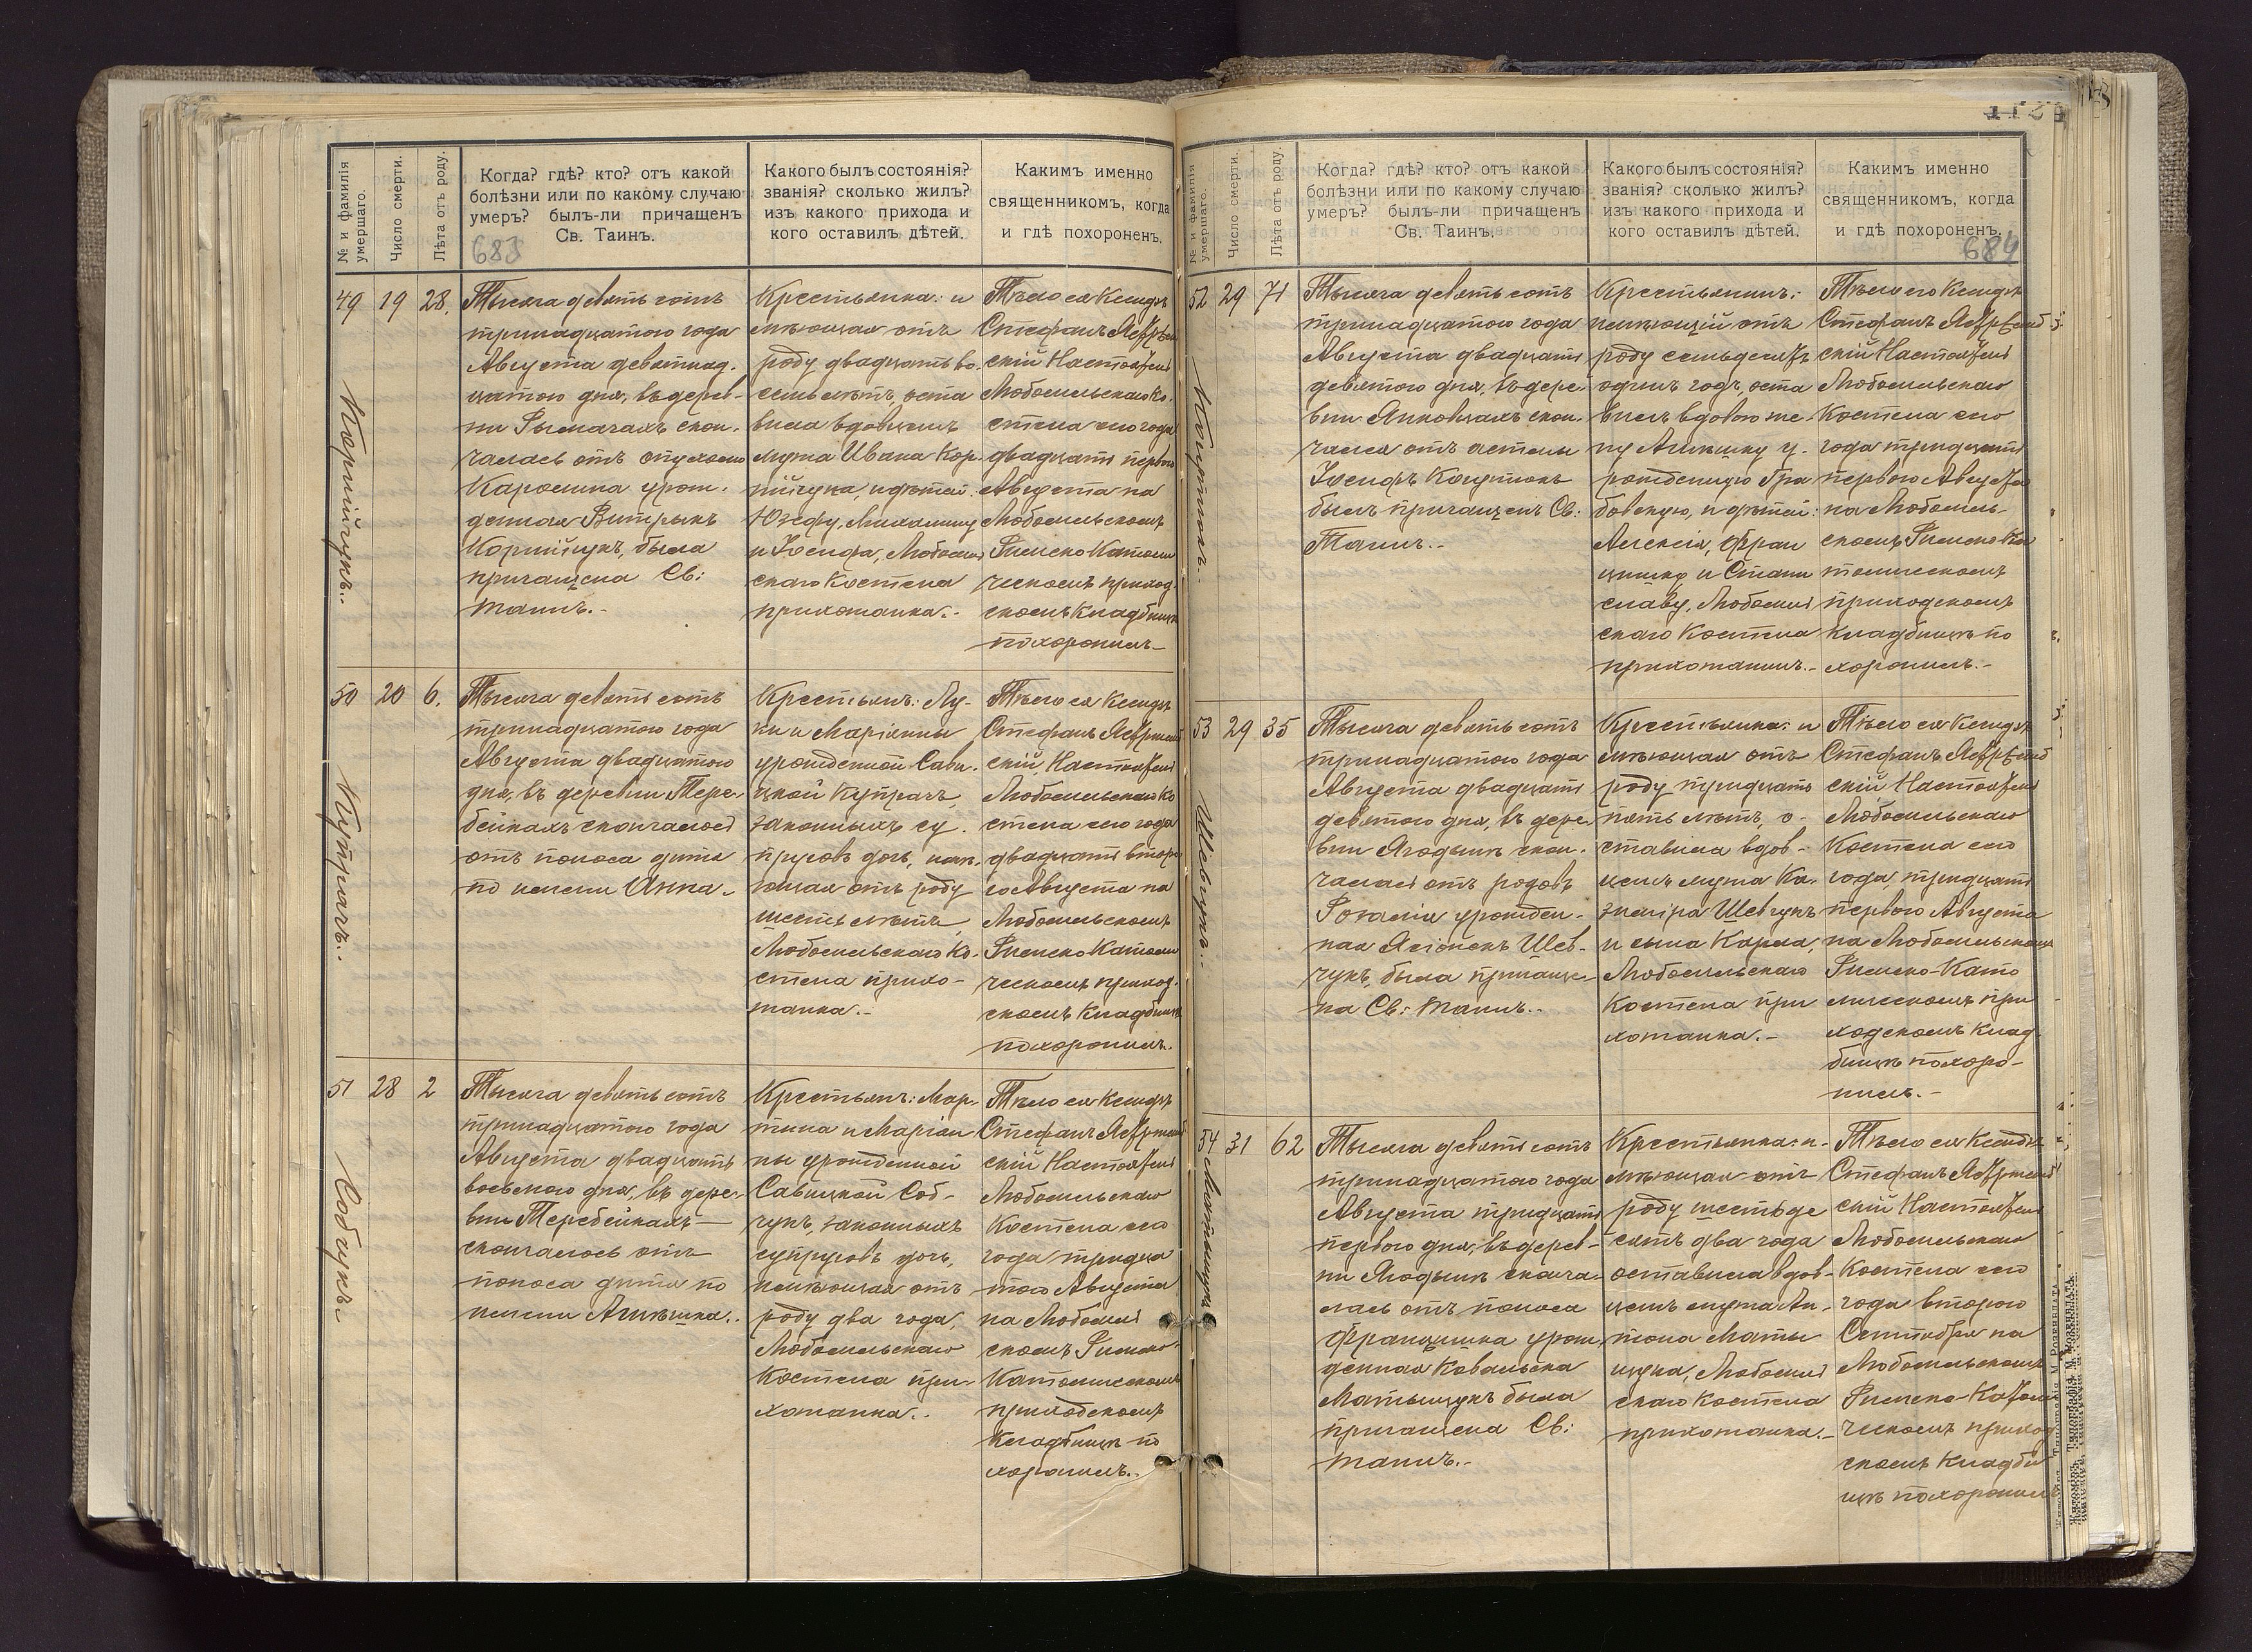 № и фамилія умершаго.
Число смерти.
Лѣта отъ роду.
Когда? гдѣ? кто? отъ какой
болѣзни или по какому случаю
умеръ? былъ-ли причащенъ
Св. Таинъ.
683
Какого былъ состоянія?
званія? сколько жилъ?
изъ какого прихода и
кого оставилъ дѣтей.
Какимъ именно
священникомъ, когда
и гдѣ похороненъ.
49 19 28.
Корнійчукъ..
Тысяча девятьсотъ
тринадцатого года
Августа девятнад-
цатого дня, въ дерев-
ни Рымачахъ скон-
чалась отъ опухоли
Каролина урож-
денная
Корнійчукъ, была
причащена Св:
Таинъ.-
Крестьянка: и
мѣющая отъ
роду двадцать во-
семь лѣтъ, оста
вила вдовцемъ
мужа Ивана Кор-
нійчука, и дѣтей:
Юзефу, Михалину
и Іосифа, Любомль
скаго Костела
прихожанка.-
Тѣло ея Ксендзъ
Стефанъ
скій Настоятель
Любомльскаго Ко-
стела сего года
двадцать перваго
Августа на
Любомльскомъ
Римско Католи
ческомъ приход
скомъ Кладбищѣ
похоронилъ-
50 20 6.
Купрачъ..
Тысяча девятьсотъ
тринадцатого года
Августа двадцатого
дня, въ деревни Тере-
бейкахъ скончалось
отъ поноса дитя
по имени Анна.
Крестьянъ: Лу-
ки и Маріанны
урожденной Сави-
цкой Купрачъ,
законныхъ су-
пруговъ дочь, имѣ-
ющая отъ роду
шесть лѣтъ,
Любомльскаго Ко-
стела прихо-
жанка.-
Тѣло ея Ксендзъ
Стефанъ
скій, Настоятель
Любомльскаго Ко
стела сего года
двадцать второ
го Августа на
Любомльскомъ
Римско Католи
ческомъ приход-
скомъ Кладбищѣ
похоронилъ.
51 28 2
Собчукъ.
Тысяча девятьсотъ
тринадцатого года
Августа двадцать
восьмого дня, въ дере-
вни Теребейкахъ
скончалось отъ
поноса дитя по
имени Агнѣшка..
Крестьянъ: Мар-
тина и Маріан
ны урожденной
Савицкой Соб-
чукъ, законныхъ
супруговъ дочь,
имѣющая отъ
роду два года,
Любомльскаго
Костела при-
хожанка..
Тѣло ея Ксендзъ
Стефанъ
скій Настоятель
Любомльскаго
Костела сего
года тридца
того Августа
на Любомль
скомъ Римско-
Католическомъ
приходскомъ
Кладбищѣ по
хоронилъ..
№ и фамилія умершаго.
Число смерти.
Лѣта отъ роду.
Когда? гдѣ? кто? отъ какой
болѣзни или по какому случаю
умеръ? былъ-ли причащенъ
Св. Таинъ.
Какого былъ состоянія?
званія? сколько жилъ?
изъ какого прихода и
кого оставилъ дѣтей.
Какимъ именно
священникомъ, когда
и гдѣ похороненъ.
684
52 29 71
Тысяча девятьсотъ
тринадцатого года
Августа двадцать
девятого дня, въ дере-
вни Янковцахъ скон-
чался отъ астмы
Іосифъ
былъ причащенъ Св:
Таинъ.-
Крестьянинъ:
имѣющій отъ
роду семьдесятъ
одинъ годъ, оста
вилъ вдовою же-
ну Агнѣшку у-
рожденную Гра
бовскую, и дѣтей:
Алексія, Фран
цишку и Стани
славу, Любомль
скаго Костела
прихожанинъ.-
Тѣло его Ксендзъ
Стефанъ
скій Настоятель
Любомльскаго
Костела сего
года тридцать
перваго Августа
на Любомль-
скомъ Римско Ка
толическомъ
приходскомъ
кладбищѣ по
хоронилъ.-
53 29 35
Шевчукъ.-
Тысяча девятьсотъ
тринадцатого года
Августа двадцать
девятого дня, въ дере-
вни Ягодынѣ скон-
чалась отъ родовъ
Розалія урожден-
ная Шев-
чукъ, была причаще-
на Св: Таинъ.-
Крестьянка: и
мѣющая отъ
роду тридцать
пять лѣтъ, о-
ставила вдов-
цемъ мужа Ка-
зиміра Шевчукъ
и сына Карла,
Любомльскаго
Костела при
хожанка.-
Тѣло ея Ксендзъ
Стефанъ
скій Настоятель
Любомльскаго
Костела сего
года, тридцать
перваго Августа
на Любомльскомъ
Римско-Като
лическомъ при
ходскомъ Клад-
бищѣ похоро-
нилъ.-
54 31 62
Матыщукъ
Тысяча девятьсотъ
тринадцатого года
Августа тридцать
перваго дня, въ дерев-
ни Ягодынѣ сконча-
лась отъ поноса
Францишка урож-
денная Ковальска
Матыщукъ была
причащена Св:
Таинъ.-
Крестьянка: и-
мѣющая отъ
роду шестьде
сятъ два года
оставила вдов-
цемъ мужа Ан-
тона Маты
щука, Любомль
скаго Костела
прихожанка.-
Тѣло ея Ксендзъ
Стефанъ
скій Настоятель
Любомльскаго
Костела сего
года второго
Сентября на
Любомльскомъ
Римско-Католи
ческомъ приход
скомъ Кладби
щѣ похоронилъ
Житоміръ. Типографія М. Розенблата.